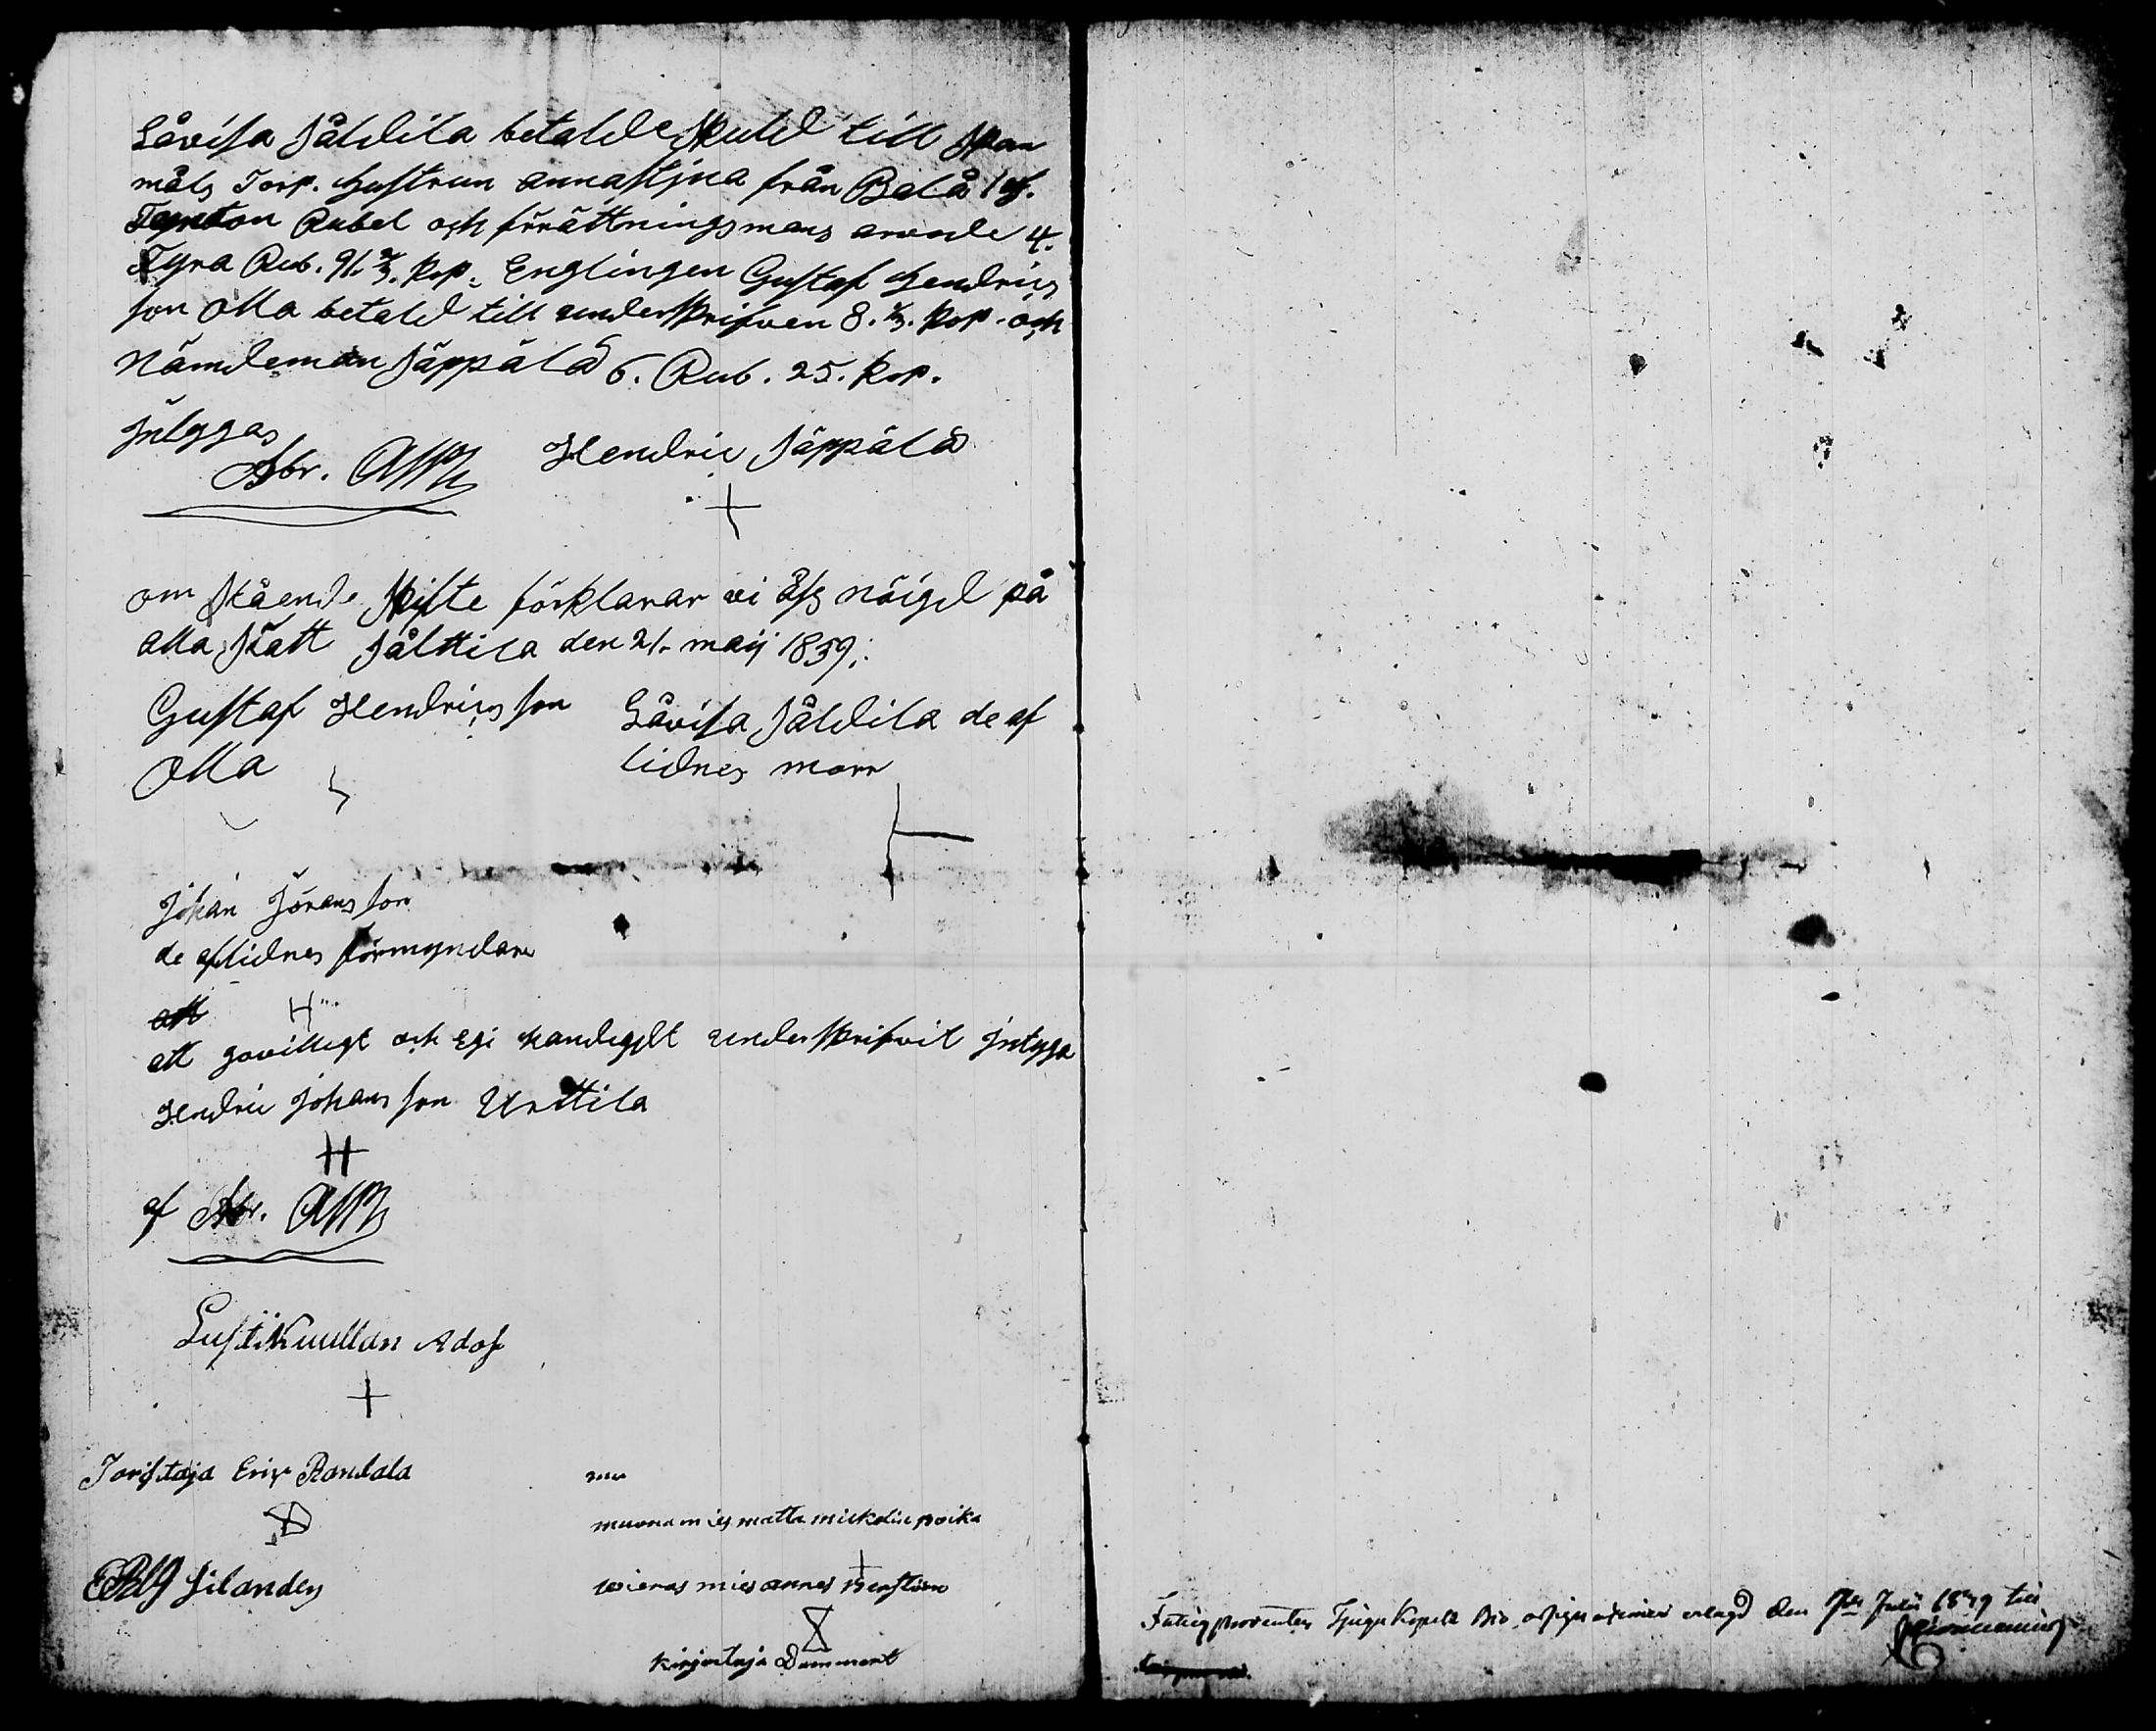 Låvisa Såldila betald skuld till span
måls Torp. hustrun annastjna från Balå 1 af.
Rubel och förättningsmans arvode 4.
Fyra Rub. 91. 2/3. kop. Englingen Gustaf Hendrics
son Olla betald till underskrifven 8. 1/3. kop. och
Nämdeman Säppälä 6. Rub. 25. kop.
Intygas
Abr. Hendric Säppälä
om stående skifte förklarar vi åss nöigd på
alla sätt Sålttila den 21. maij 1839.
Gustaf Hendricsson Låvisa Såldila de af
Olla lidnes morr
Johan Göransson
de aflidnes förmyndare
att
att govilligt och Egi handigt underskrifvit intyga
Hendric Johansson Urttila
af Abr.
Kuullan Adof
Erix Randala
muonamies matti mickelin poika
Silander
wieras mies
kirjoitaja Dammert
Fattig procenten Kopek Bco erlagd den 7de Julii 1839 till